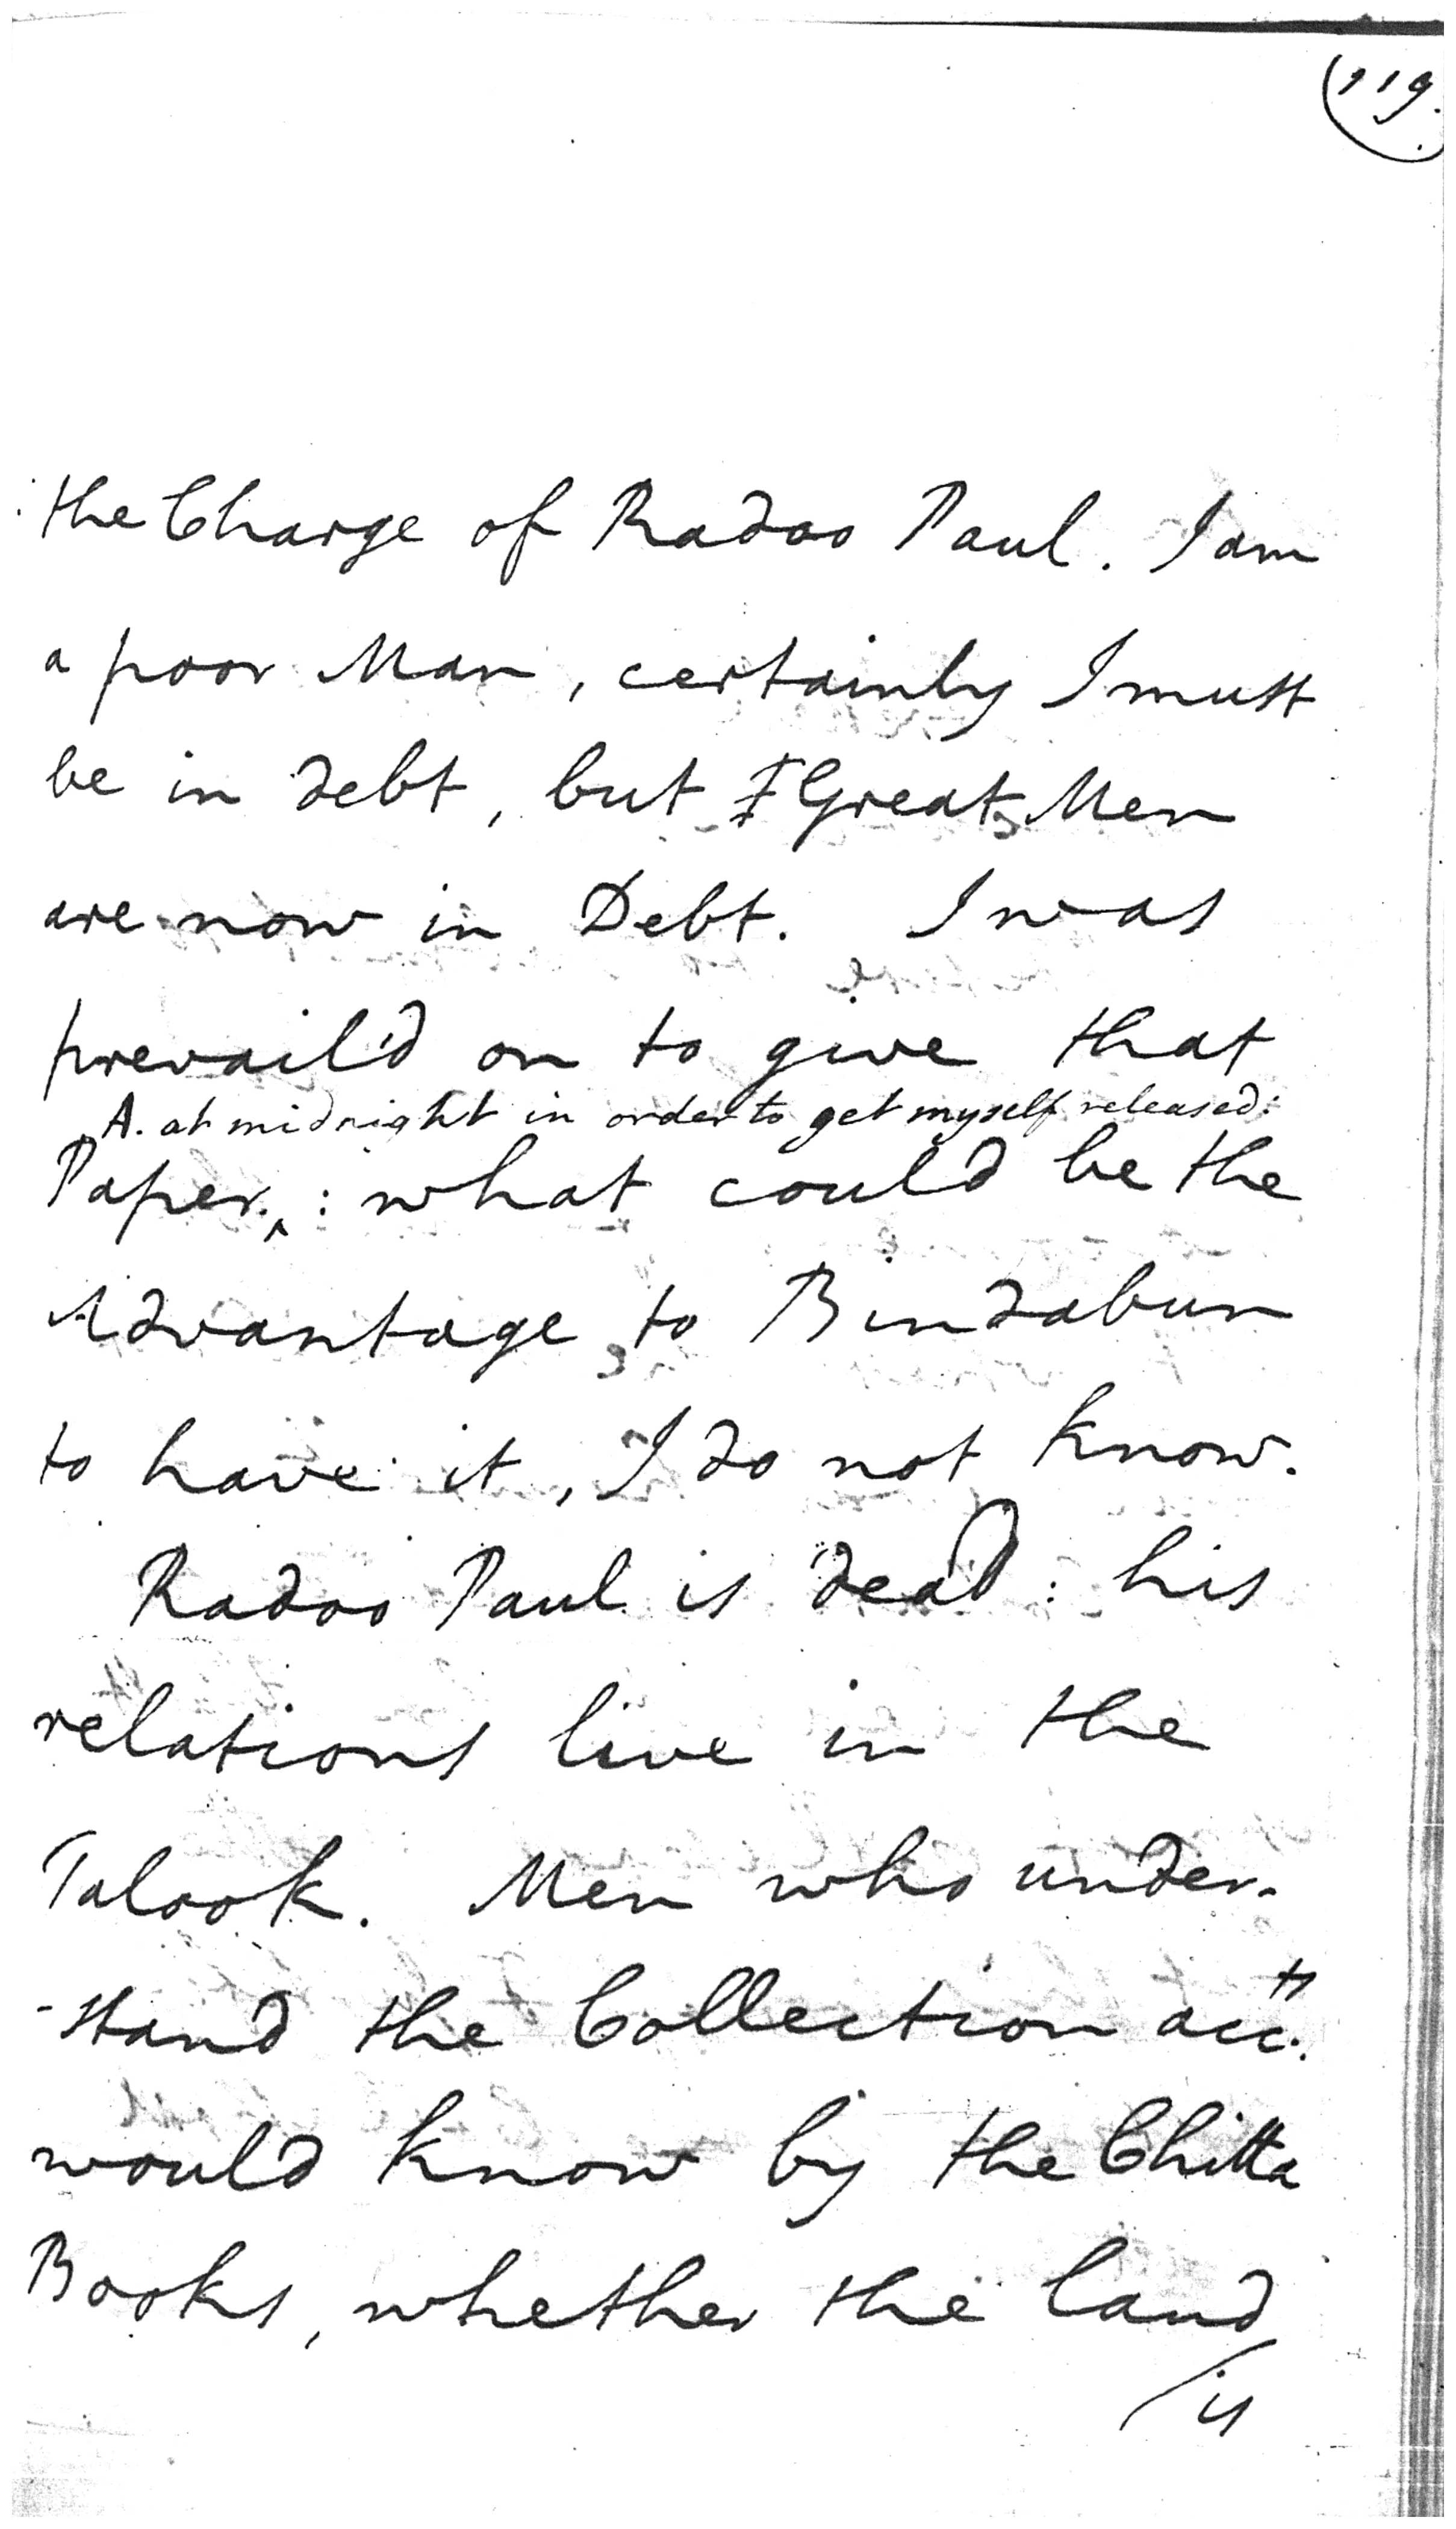 119.
the Charge of Radoo Paul. I am
a poor Man, certainly I must
be in debt, but Great Men
are now in Debt. I was
prevail'd on to give that
A. at midnight in order to get myself released:
Paper.^: what could be the
Advantage to Bindabun
to have it, I do not know.
Radoo Paul is dead: his
relations live in the
Talook. Men who under-
-stand the Collection acc.ts
would know by the Chitta
Books, whether the land
/is